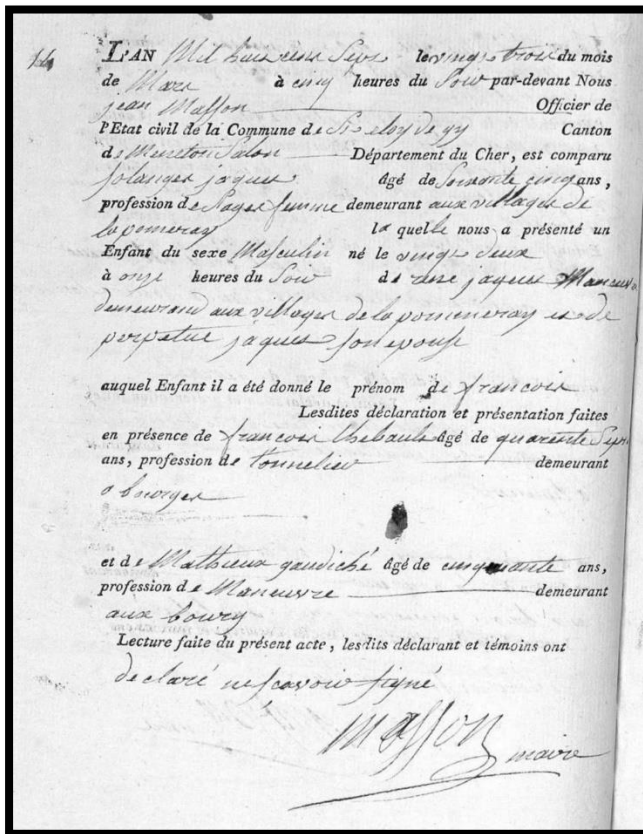 14
L'AN Mil huis cens Sept le vingt trois du mois
de Mars à cinq heures du Soir par-devant Nous
jean Masson Officier de
l'Etat civil de la Commune de St eloy de gy Canton
de Meneton Salon Département du Cher, est comparu
Solanges jaques âgé de Soixante cinq ans,
profession de Sages femme demeurant aux villages de
la pomeray la quelle nous a présenté un
Enfant du sexe Masculin né le vingt deux
à onze heures du Soir de rene jaques Maneuvre
demeurand aux villages de la pommeray et de
perpetue jaques son epouse
auquel Enfant il a été donné le prénom de francois
Lesdites déclaration et présentation faites
en présence de francois thebault âgé de quarente Sept
ans, profession de tonnelier demeurant
a bourges
et de Mathieux gaudiché âgé de cinquante ans,
profession de Maneuvre demeurant
aux bourg
Lecture faite du présent acte, lesdits déclarant et témoins ont
declaré ne scavoir signé
Masson
maire